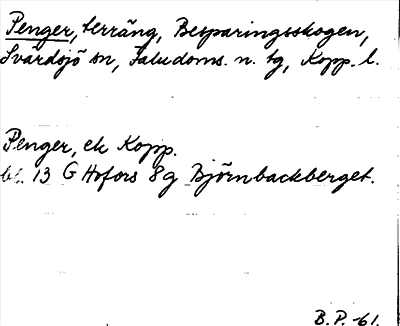 Penger, terräng, Besparingsskogen,
Svärdsjö sn, Faludoms. n. tg, Kopp. l.
Penger, ek Kopp.
bl. 13 G Hofors 8g Björnbackberget.
B.P. -61.